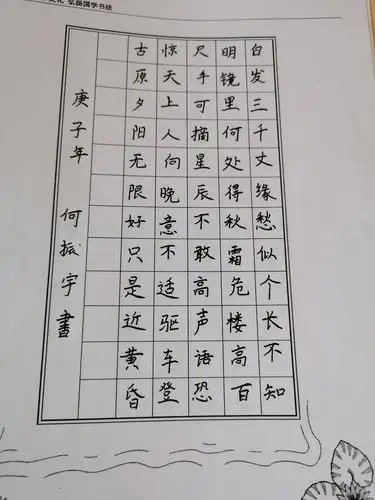 化 弘扬国学书法
白发三千丈缘愁似个长不知
明镜里何处得秋霜危楼高百
尺手可摘星辰不敢高声语恐
惊天上人向晚意不适驱车登
古原夕阳无限好只是近黄昏
庚子年 何振宇書